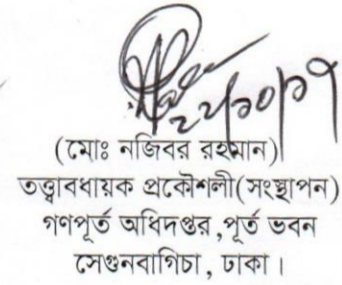 ২২/১০/১৭
(মোঃ নজিবর রহমান)
তত্ত্বাবধায়ক প্রকৌশলী(সংস্থাপন)
গণপূর্ত অধিদপ্তর,পূর্ত ভবন
সেগুনবাগিচা, ঢাকা।